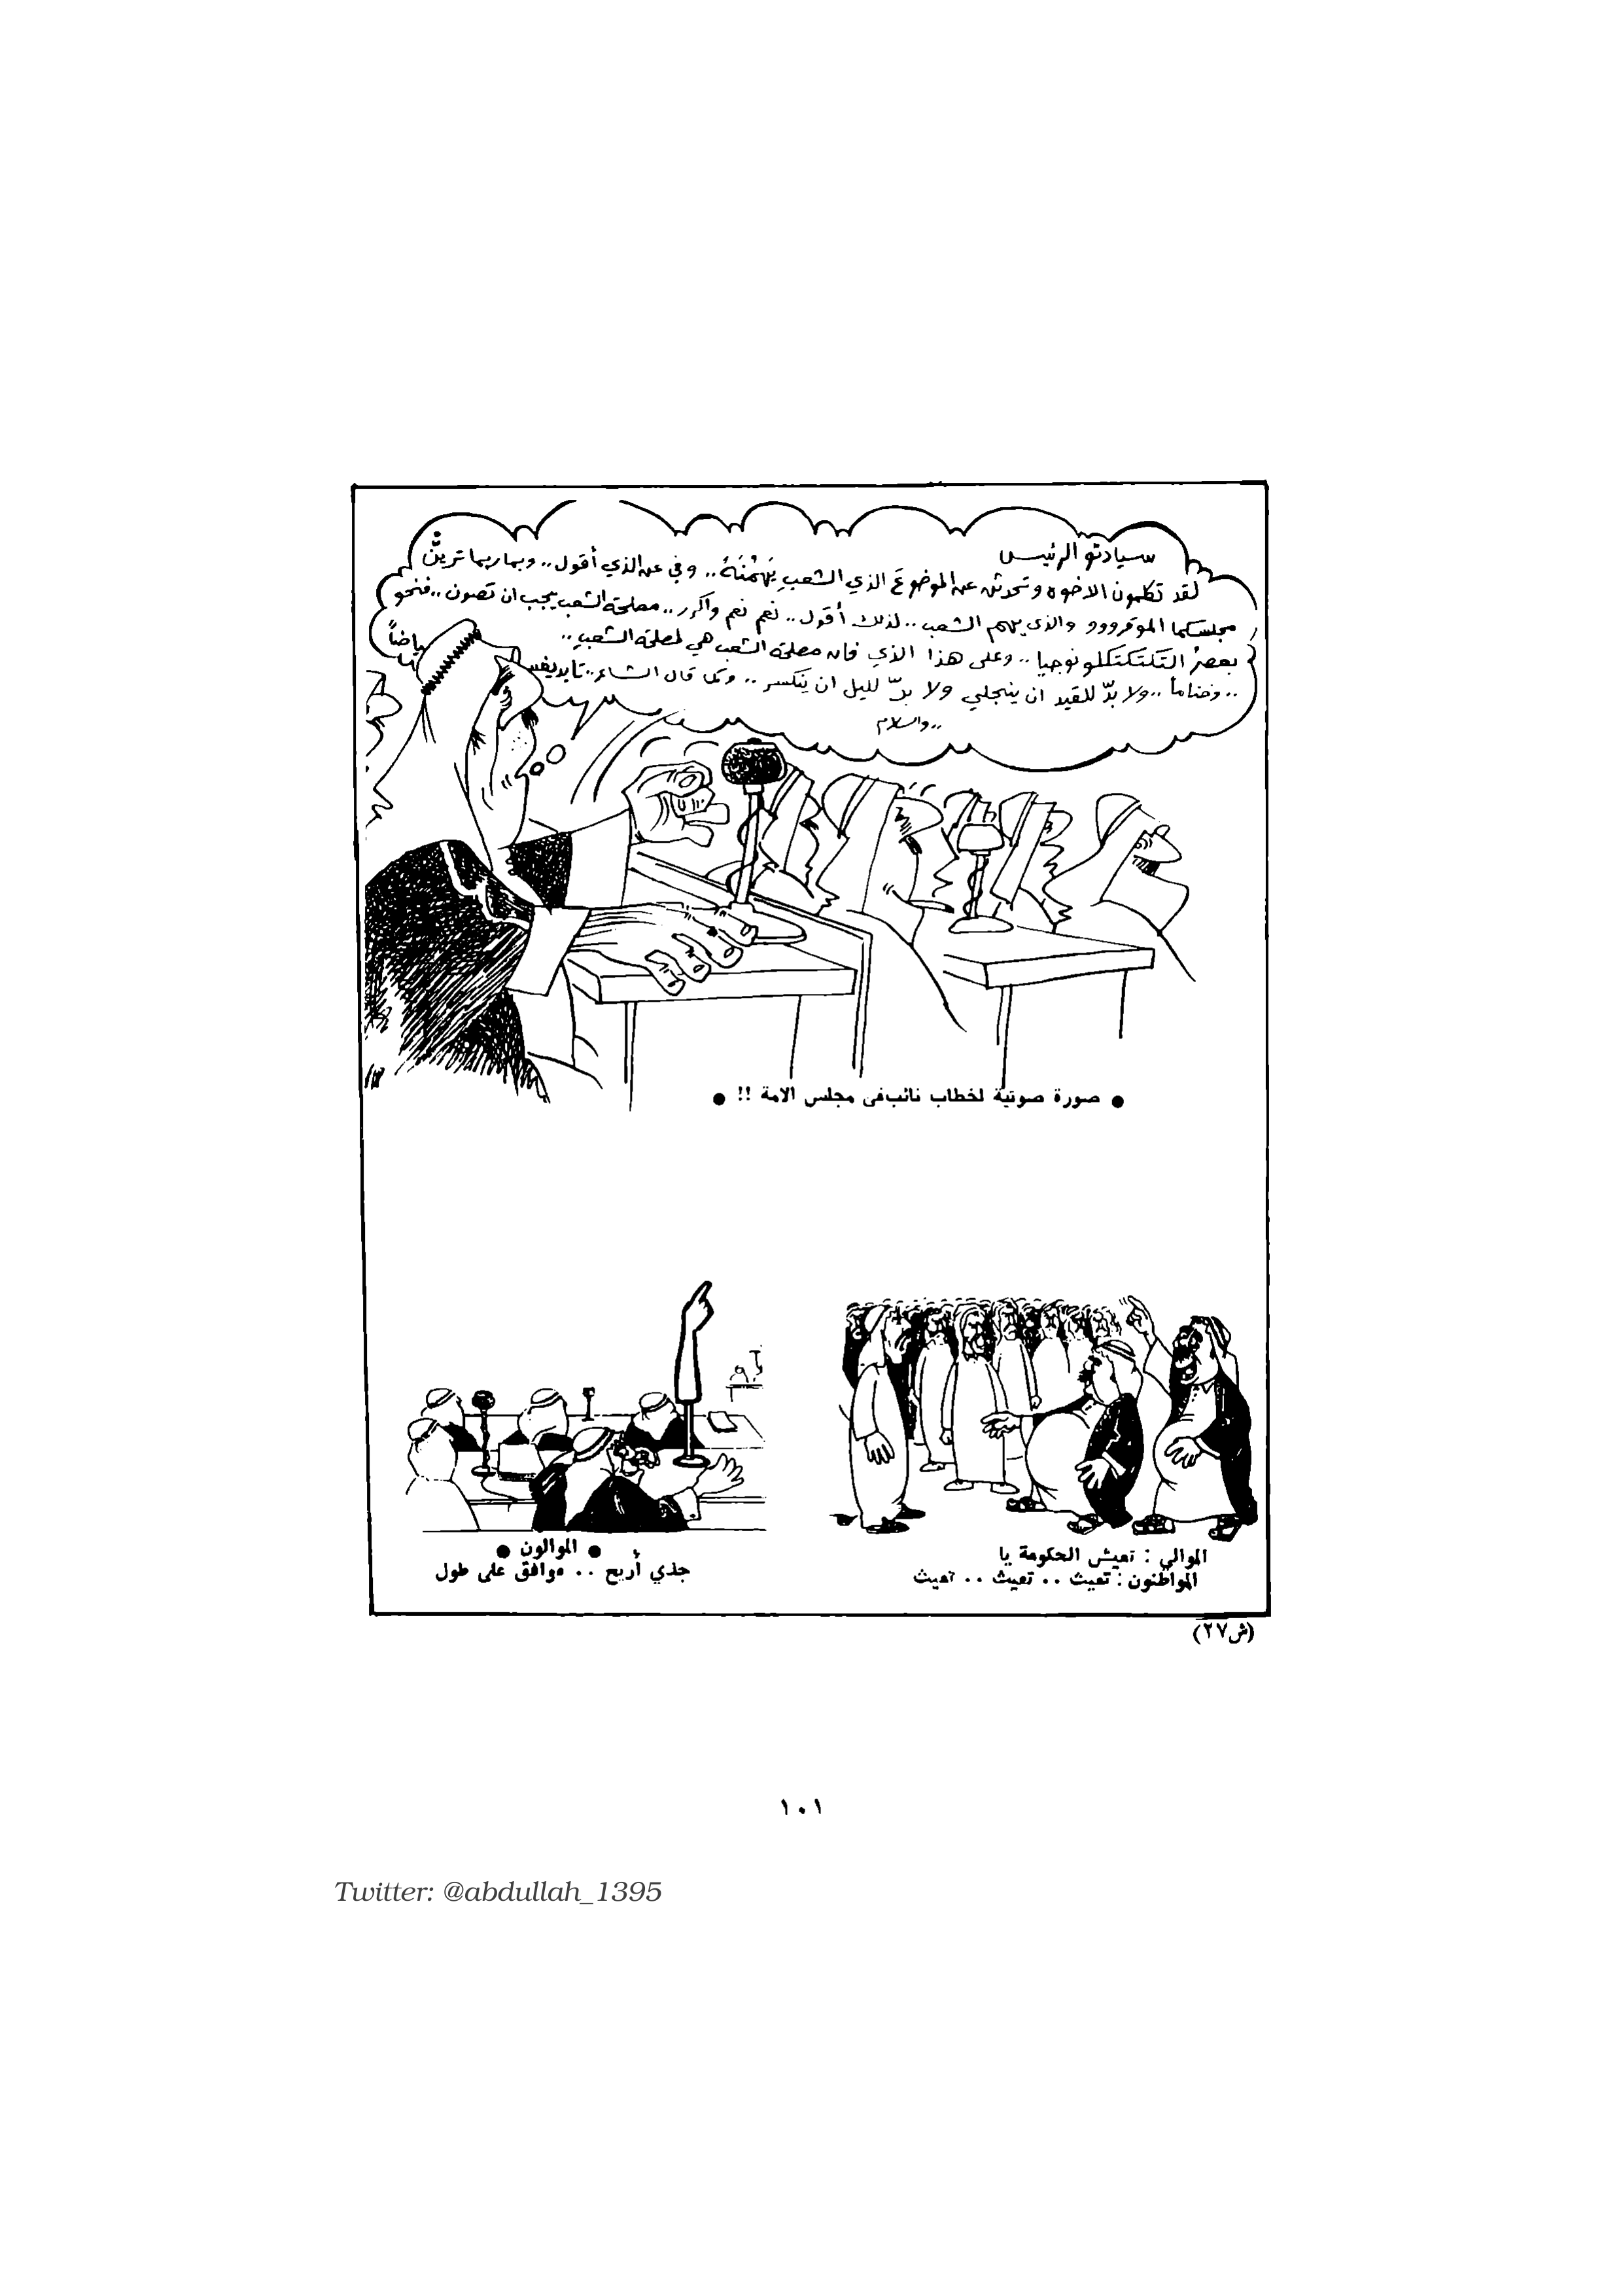 سيادتو الرئيس
لقد تكلمون الاخوه وتحدثن عن الموضوعَ الذي الشعبِ يَهُمُنَهُ.. وفي عن الذي أقول.. وبما ربما ترينَّ
مجلسكما الموقرووو والذي يهم الشعب.. لذلك أقول.. نعم نعم واكرر.. مصلحة الشعب يجب ان تصون.. فنحو
بعصرُ التكتكتكلونوجيا.. وعلى هذا الذي فان مصلحة الشعب هي لمصلحة الشعبِ.. ياضاً
.. وختاماً.. ولا بدّ للقيد ان ينجلي ولا بدّ لليل ان ينكسر.. وكما قال الشاعر..
.. والسلام
● صورة صوتية لخطاب نائب في مجلس الامة !! ●
الموالي : تعيش الحكومة يا
المواطنون : تعيث .. تعيث .. تعيث
● الموالون ●
جذي أريح .. موافق على طول
(ش٢٧)
١٠١
Twitter: @abdullah_1395